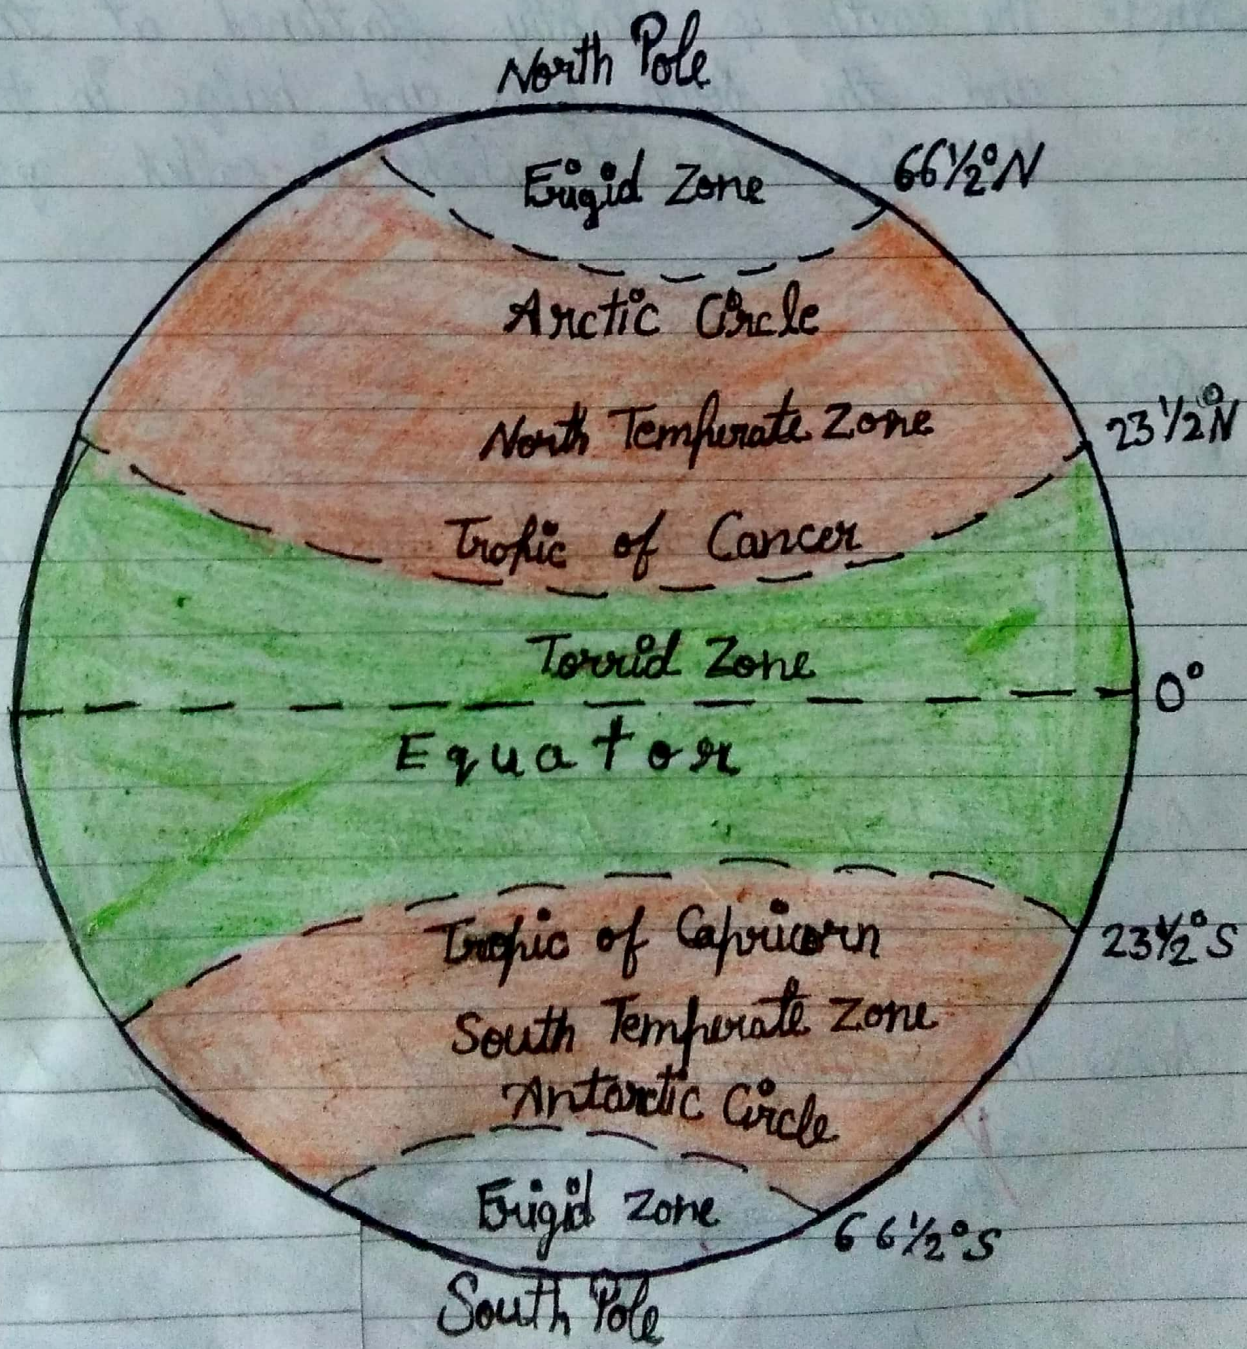 North Pole
Frigid Zone
66½°N
Arctic Circle
North Temperate Zone
23½°N
Tropic of Cancer
Torrid Zone
0°
Equator
Tropic of Capricorn
23½°S
South Temperate Zone
Antarctic Circle
Frigid Zone
66½°S
South Pole